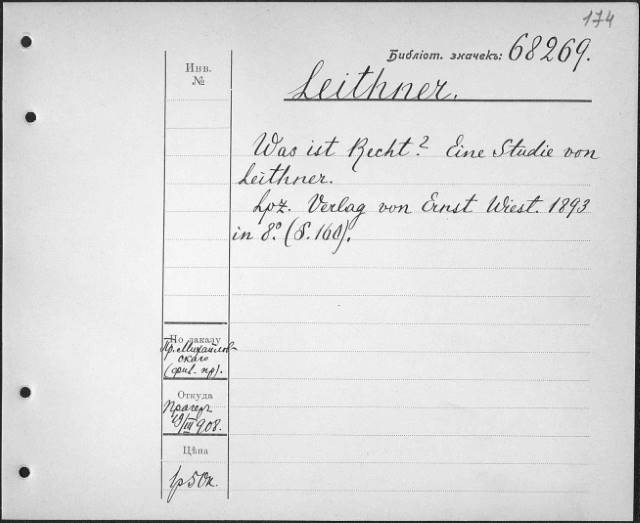 174
Библіот. значекъ: 68269.
Инв.
№
Leithner.
Was ist Recht? Eine Studie von
Leithner.
Lpz. Verlag von Ernst Wiest. 1893
in 8.° (S. 160).
По заказу
Пр. Михайлов-
скаго
(фил. пр).
Откуда
Прагеръ
19/III 908.
Цѣна
1р 50к.